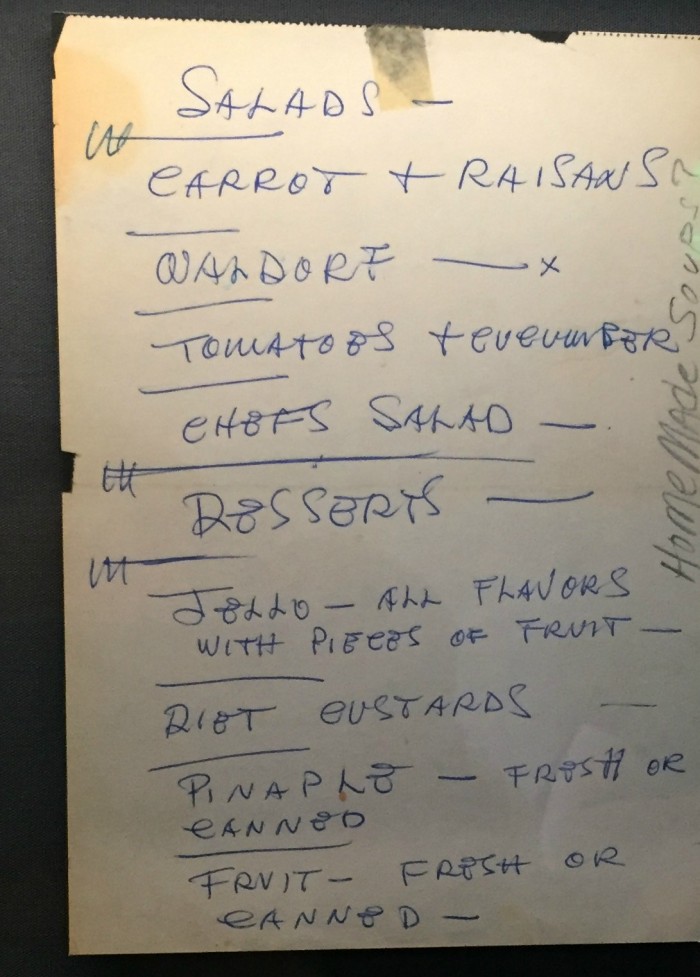 SALADS —
CARROT + RAISANS
WALDORF — x
TOMATOES + CUCUMBER
CHEFS SALAD —
DESSERTS —
JELLO — ALL FLAVORS
WITH PIECES OF FRUIT —
DIET CUSTARDS —
PINAPLE — FRESH OR
CANNED
FRUIT — FRESH OR
CANNED —
HOMEMADE SOUPS?